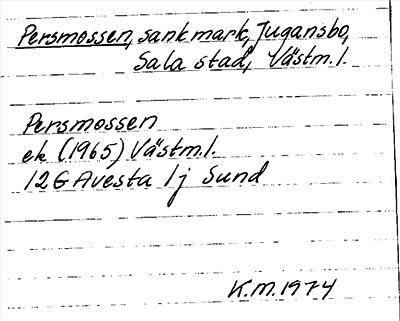 Persmossen, sank mark, Jugansbo,
Sala stad, Västm.l.
Persmossen
ek (1965) Västm.l.
12G Avesta 1j Sund
K.M. 1974